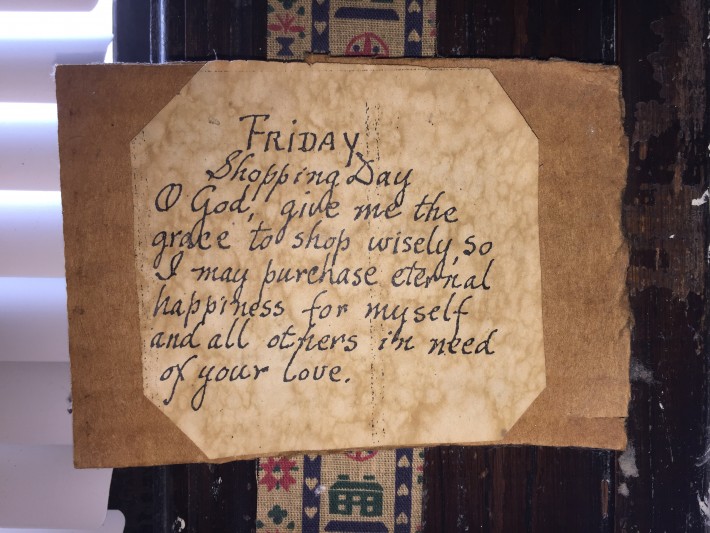 FRIDAY
Shopping Day
O God, give me the
grace to shop wisely, so
I may purchase eternal
happiness for myself
and all others in need
of your love.